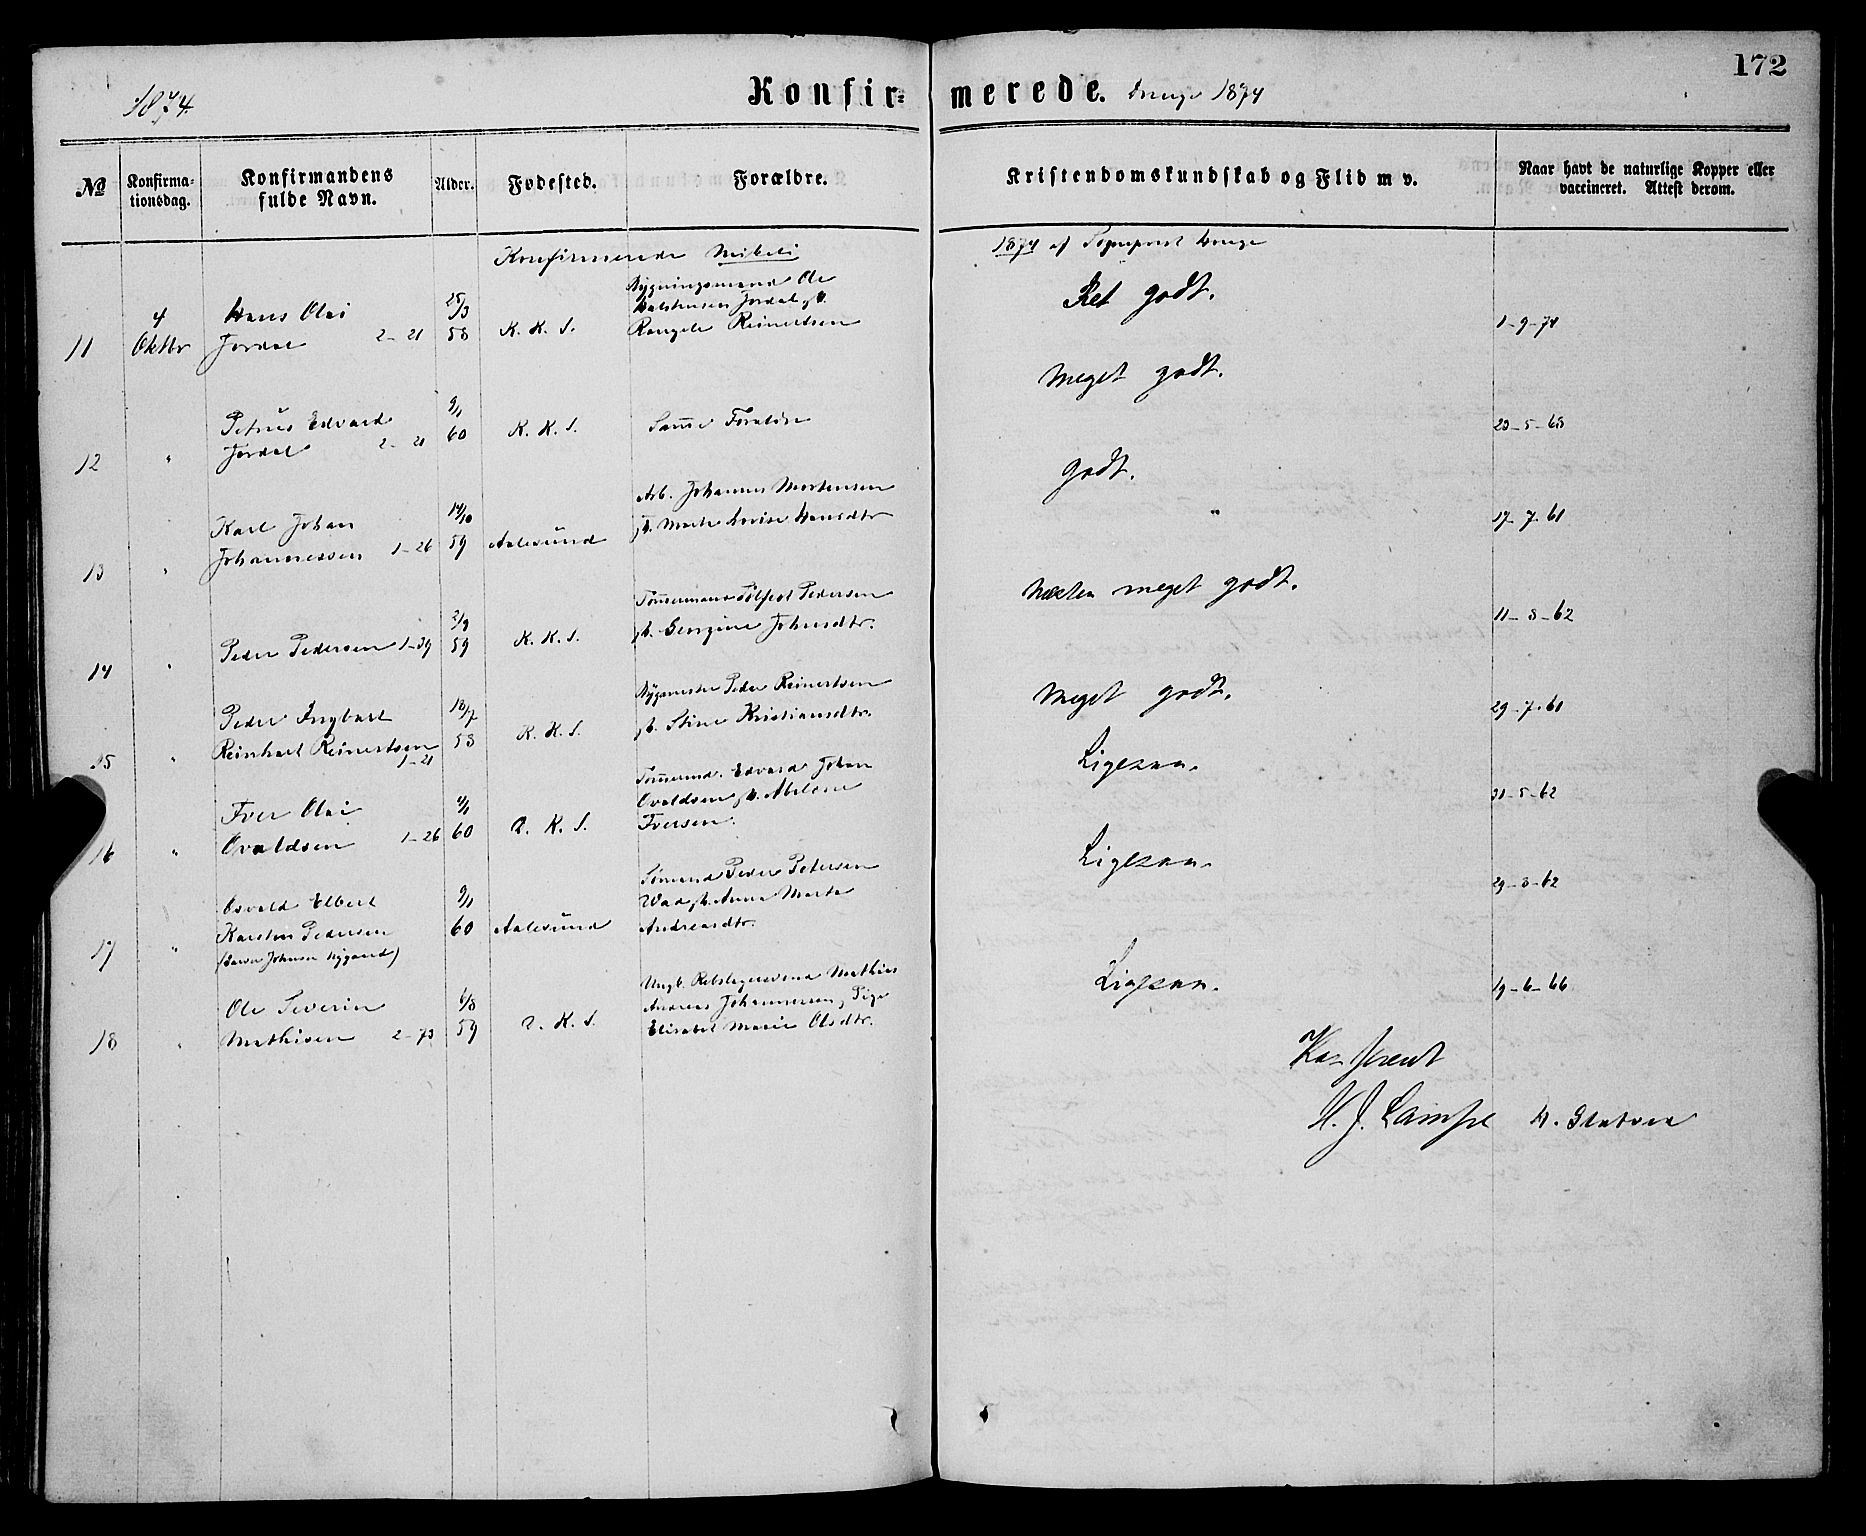 172
1874.
Konfir-
merede. Drenge 1874
№
Konfirma-
tionsdag.
Konfirmandens
fulde Navn.
Alder.
Fødested.
Forældre.
Kristendomskundskab og Flid m v.
Naar havt de naturlige Kopper eller
vaccineret. Attest derom.
Konfirmerede Mikeli
1874 af Sognepræst
11
4
Oktbr
Hans Olai
Jordal 2-21
25/3
58
K. K. S.
Bygningsmand Ole
Jordal
Reinertsen
Ret godt.
1-9-74
12
"
Petrus Edvard
Jordal 2-21
9/1
60
K. K. S.
Samme Forældre
Meget godt.
23-5-65
13
"
Karl Johan
Johannessen 1-26
14/10
59
Aalesund
Arb. Johannes Mortensen
Hansdtr
godt.
"
17-7-61
14
"
Peder Pedersen 1-39
2/9
59
K. K. S.
Pedersen
Georgine Johnsdtr.
Næsten meget godt.
11-8-62
15
"
Peder Ingbart
Reinhart Reinertsen
1-21
18/7
58
K. K. S.
Bygmester Peder Reinertsen
Stine Kristiansdtr.
Meget godt.
29-7-61
16
"
Iver Olai
Ovaldsen 1-26
4/1
60
K. S.
Edvard Johan
Ovaldsen
Iversen.
Ligesaa.
31-5-62
17
"
Osvald Elbert
Karsten Pedersen
9/1
60
Aalesund
Sømand Peder Petersen
Anne Marta
Andreasdtr.
Ligesaa.
29-8-62
18
"
Ole Severin
Mathisen 2-73
6/8
59
K. S.
Ungk. Rebslagersvend Mathias
Andreas Johannessen, Pige
Elisabet Marie Olsdtr.
Ligesaa.
19-6-66
Konfereret
H. J. Lampe